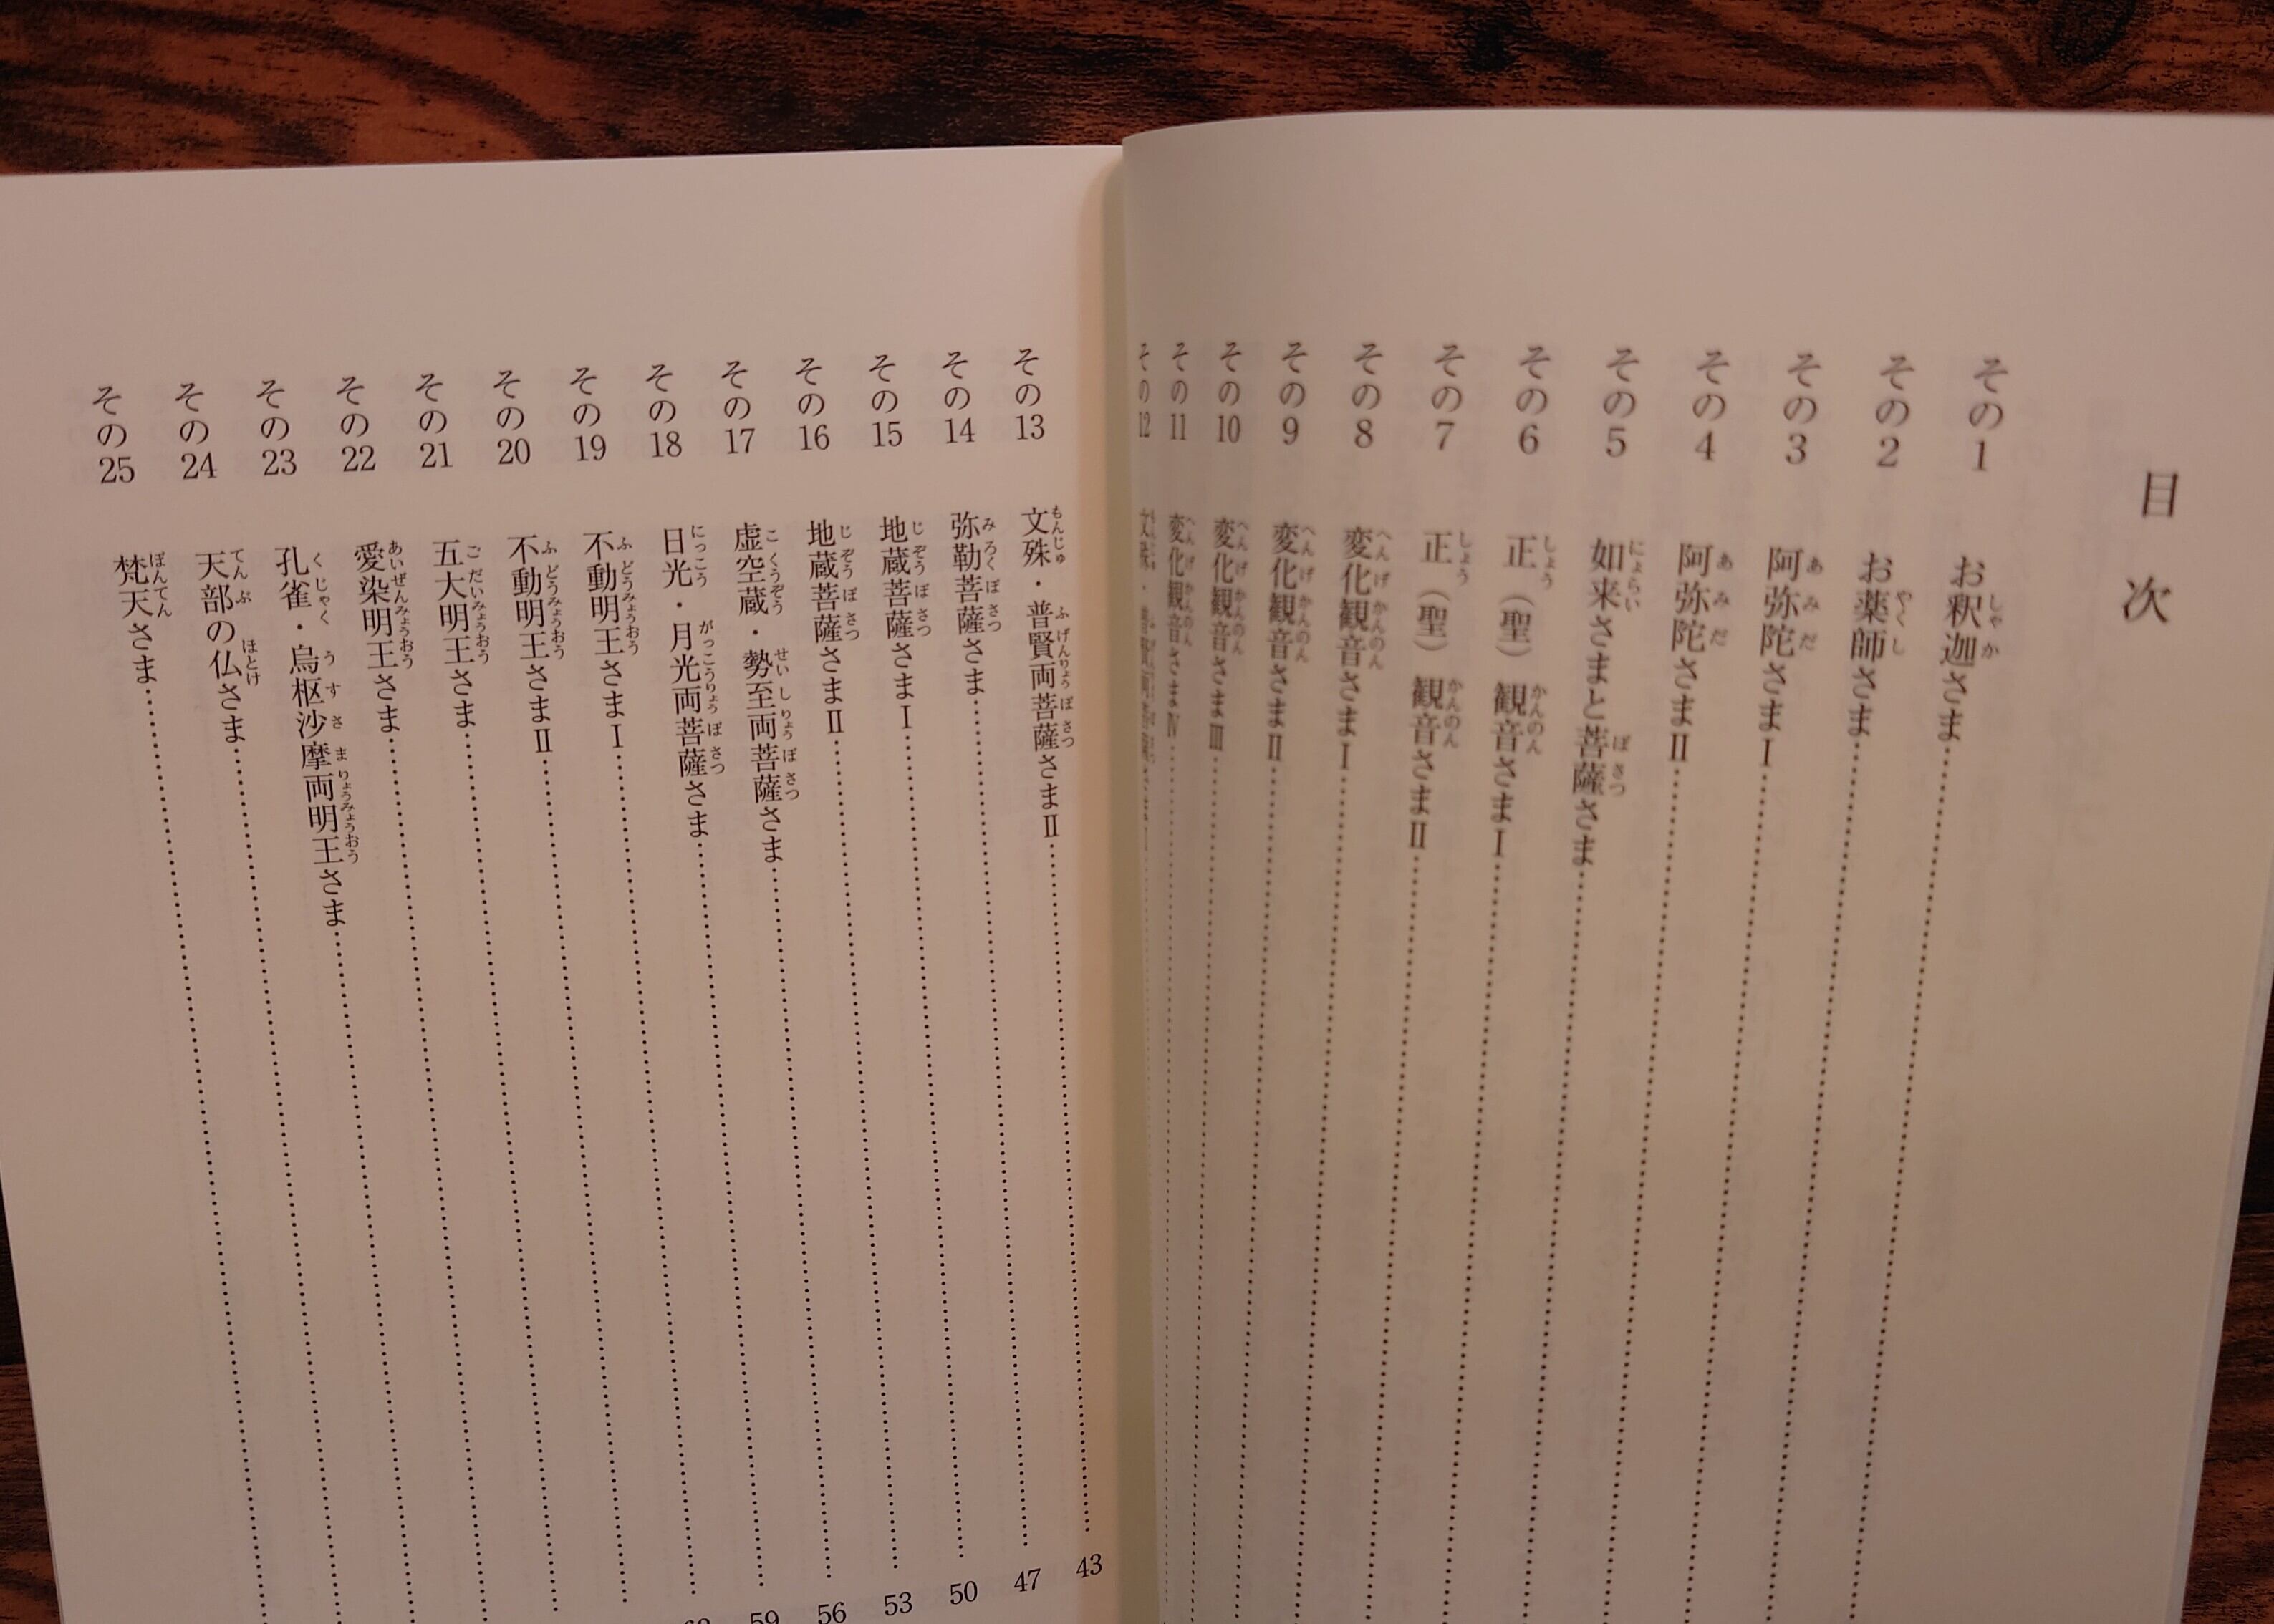 目次
その1 お釈迦さま
その2 お薬師さま
その3 阿弥陀さまⅠ
その4 阿弥陀さまⅡ
その5 如来さまと菩薩さま
その6 正（聖）観音さまⅠ
その7 正（聖）観音さまⅡ
その8 変化観音さまⅠ
その9 変化観音さまⅡ
その10 変化観音さまⅢ
その11 変化観音さまⅣ
その12 文殊・普賢両菩薩
その13 文殊・普賢両菩薩さまⅡ 43
その14 弥勒菩薩さま 47
その15 地蔵菩薩さまⅠ 50
その16 地蔵菩薩さまⅡ 53
その17 虚空蔵・勢至両菩薩さま 56
その18 日光・月光両菩薩さま 59
その19 不動明王さまⅠ
その20 不動明王さまⅡ
その21 五大明王さま
その22 愛染明王さま
その23 孔雀・烏枢沙摩両明王さま
その24 天部の仏さま
その25 梵天さま